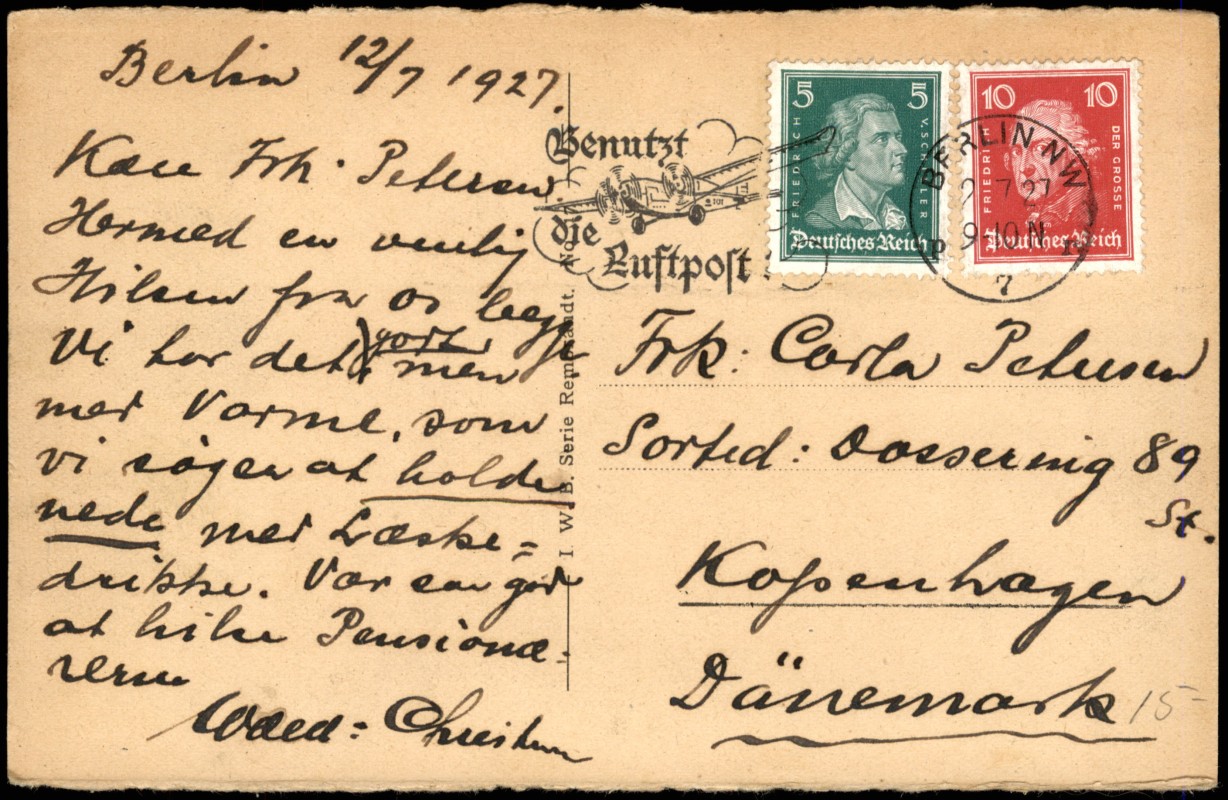 Berlin 12/7 1927.
Kære Frk. Petersen
Hermed en venlig
Hilsen fra os begge
Vi har det godt men
med Varme, som
vi søger at holde
nede med Læske=
drikke. Vær saa god
at hilse Pensionæ-
rerne
Benutzt
die
Luftpost
5 5
FRIEDRICH V. SCHILLER
Deutsches Reich
10 10
FRIEDRICH DER GROSSE
Deutsches Reich
BERLIN NW
12.7.27
9-10 N
7
I. W. B. Serie Rembrandt. No
Frk: Carla Petersen
Sorted: Dossering 89
St.
Kopenhagen
Dänemark
15-